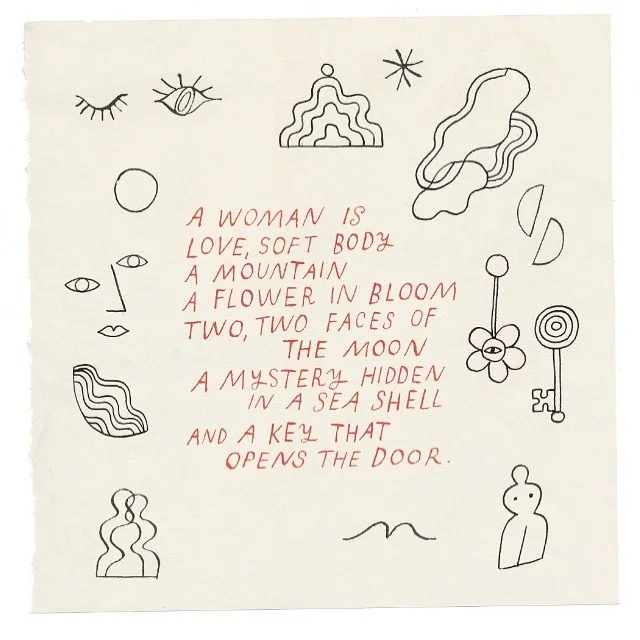 A WOMAN IS
LOVE, SOFT BODY
A MOUNTAIN
A FLOWER IN BLOOM
TWO, TWO FACES OF
THE MOON
A MYSTERY HIDDEN
IN A SEA SHELL
AND A KEY THAT
OPENS THE DOOR.